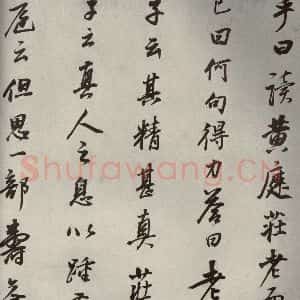 乎曰讀黃庭莊老而
已曰何句得力答曰老
子云其精甚真莊
子云真人之息以踵
卮云但思一部壽
Shufawang.CN